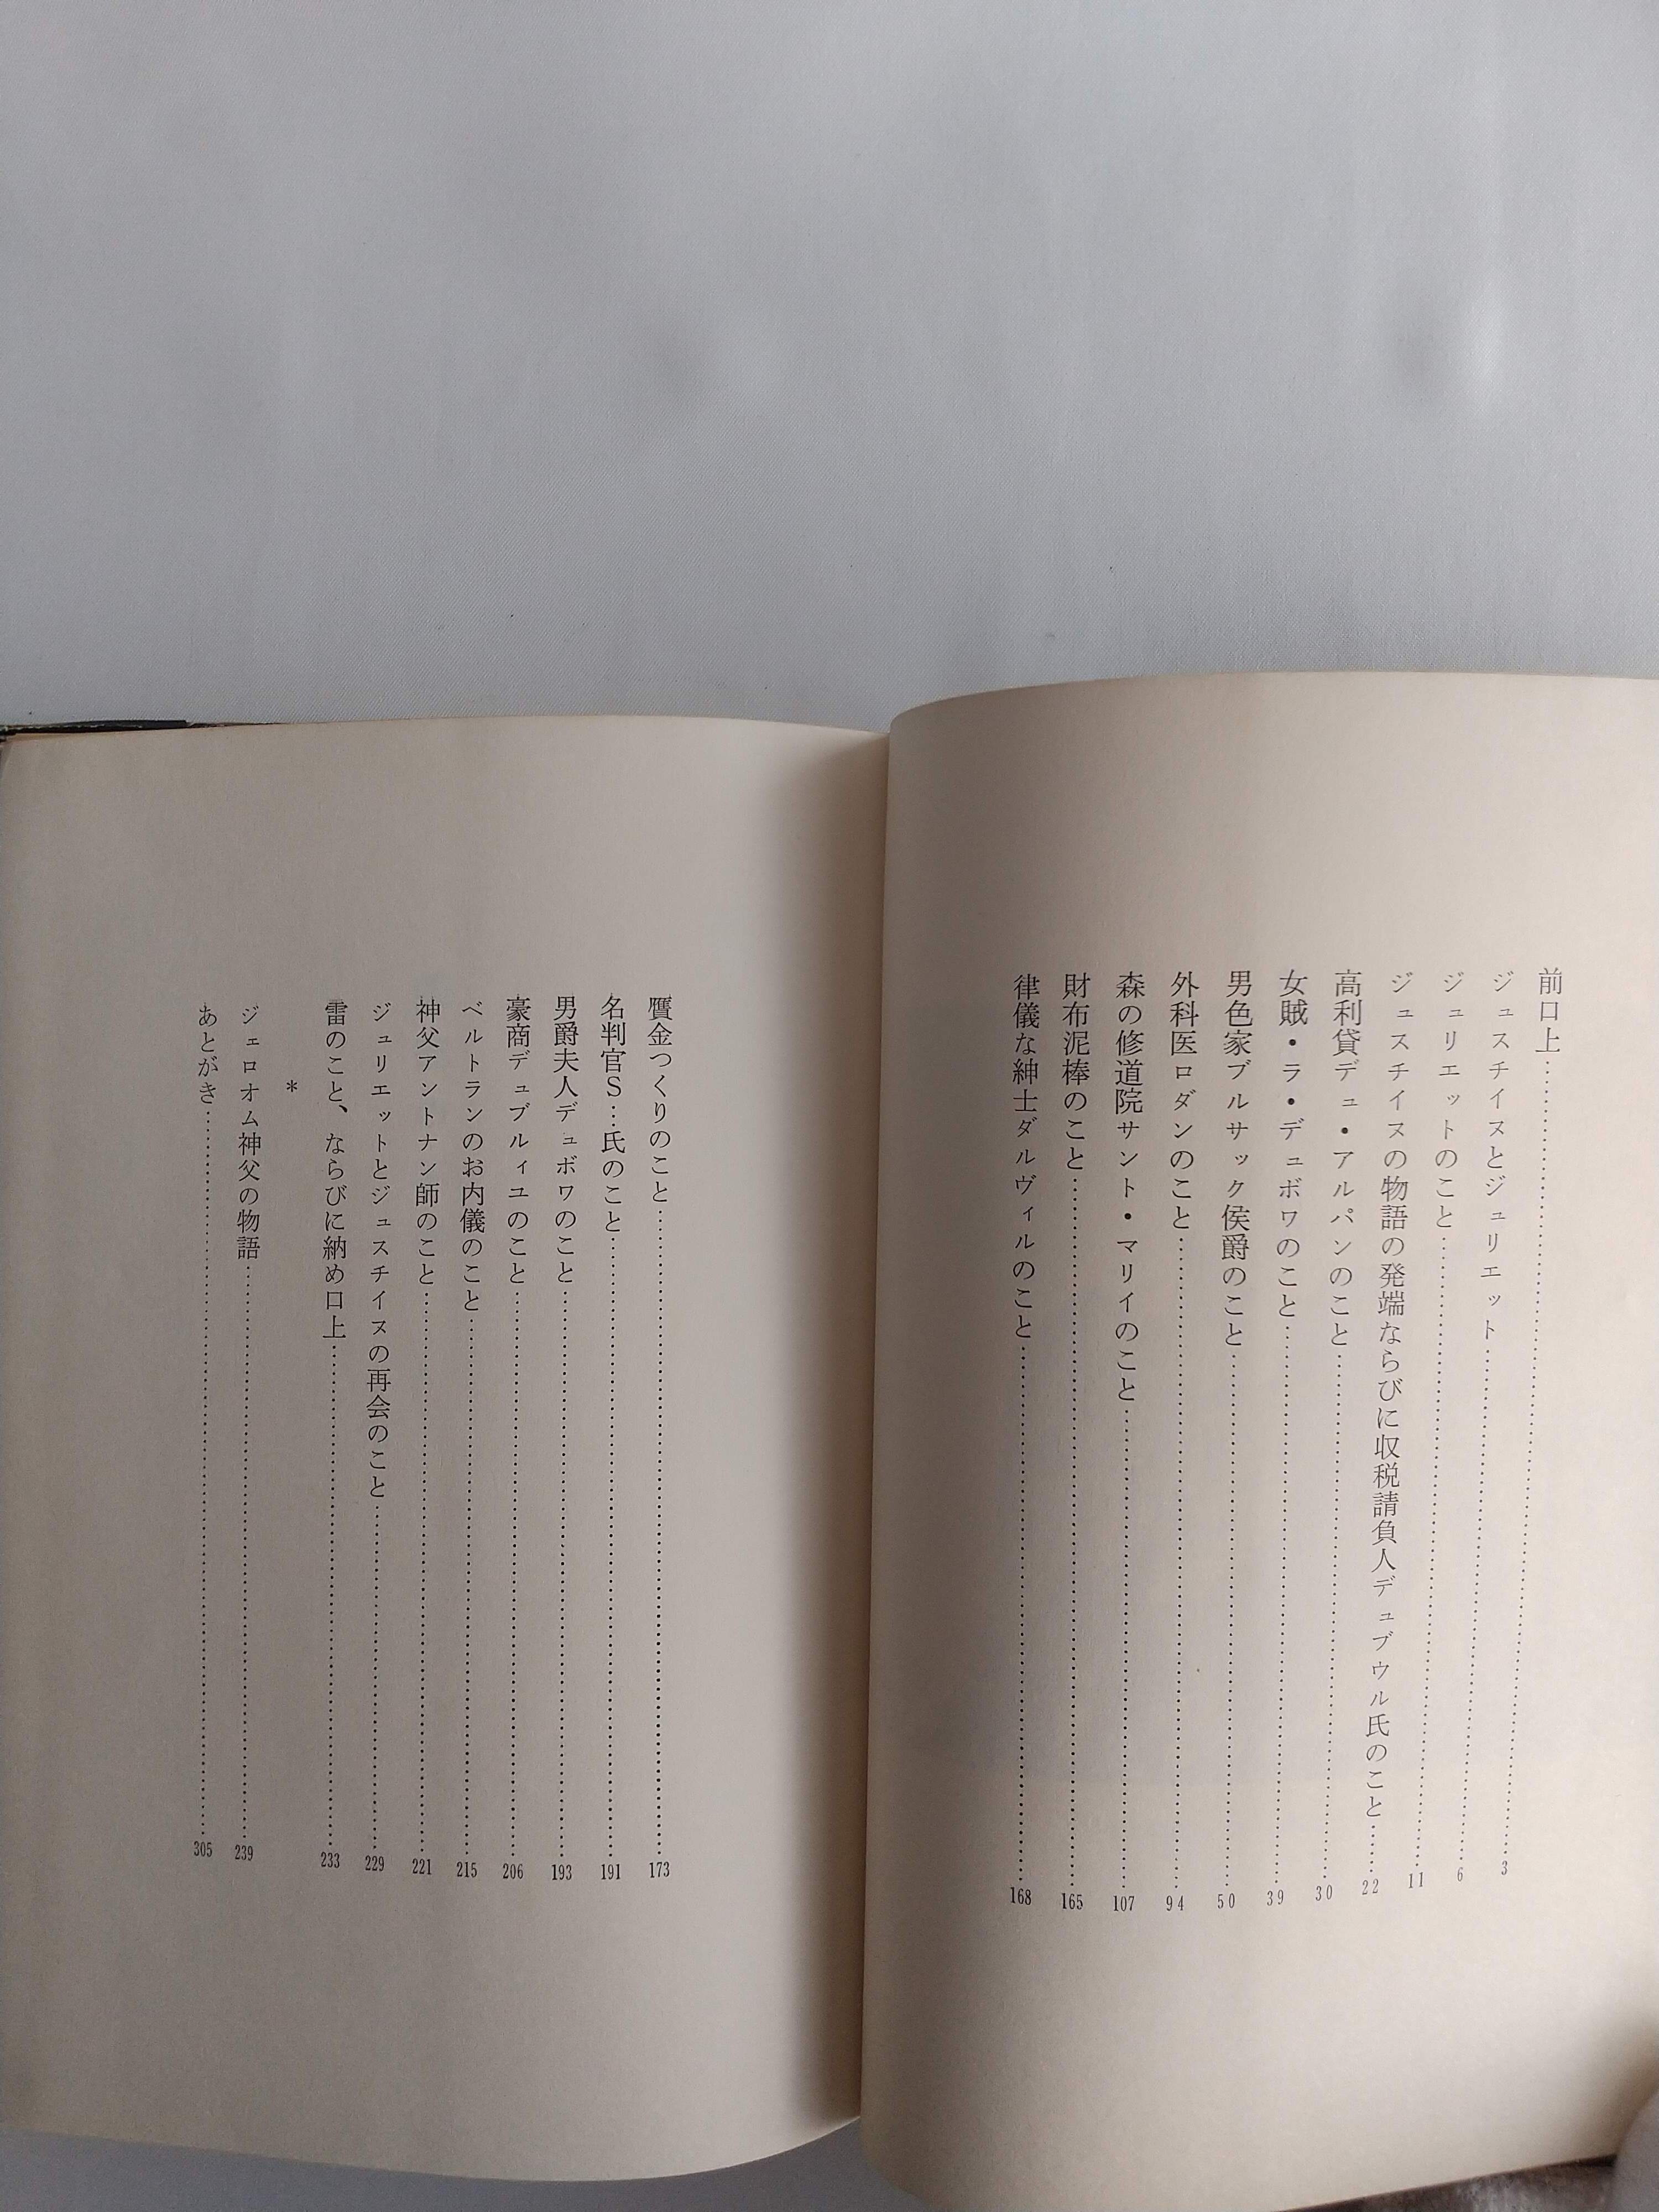 前口上……3
ジュスチイヌとジュリエット……6
ジュリエットのこと……11
ジュスチイヌの物語の発端ならびに収税請負人デュブウル氏のこと……22
高利貸デュ・アルパンのこと……30
女賊・ラ・デュボワのこと……39
男色家ブルサック侯爵のこと……50
外科医ロダンのこと……94
森の修道院サント・マリイのこと……107
財布泥棒のこと……165
律儀な紳士ダルヴィルのこと……168
贋金つくりのこと……173
名判官S…氏のこと……191
男爵夫人デュボワのこと……193
豪商デュブルイユのこと……206
ベルトランのお内儀のこと……215
神父アントナン師のこと……221
ジュリエットとジュスチイヌの再会のこと……229
雷のこと、ならびに納め口上……233
＊
ジェロオム神父の物語……239
あとがき……305